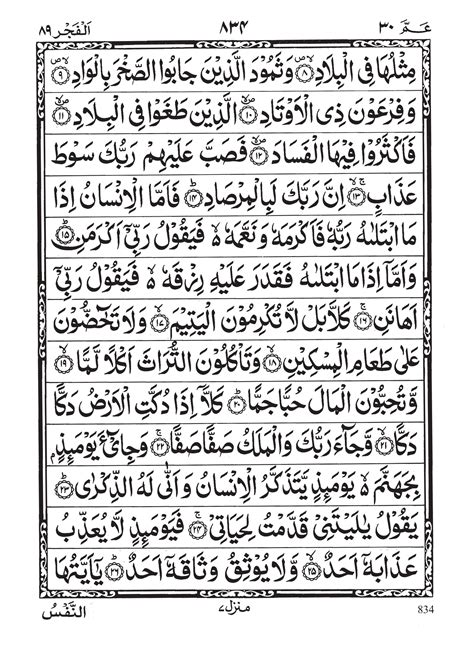 عَمَّ ٣٠ ٨٣٤ اَلْفَجْر ٨٩
مِثْلُهَا فِى الْبِلَادِ ۝٨ وَثَمُوْدَ الَّذِيْنَ جَابُوا الصَّخْرَ بِالْوَادِ ۝٩
وَفِرْعَوْنَ ذِى الْاَوْتَادِ ۝١٠ الَّذِيْنَ طَغَوْا فِى الْبِلَادِ ۝١١
فَاَكْثَرُوْا فِيْهَا الْفَسَادَ ۝١٢ فَصَبَّ عَلَيْهِمْ رَبُّكَ سَوْطَ
عَذَابٍ ۝١٣ اِنَّ رَبَّكَ لَبِالْمِرْصَادِ ۝١٤ فَاَمَّا الْاِنْسَانُ اِذَا
مَا ابْتَلٰىهُ رَبُّهٗ فَاَكْرَمَهٗ وَنَعَّمَهٗ ە فَيَقُوْلُ رَبِّىْٓ اَكْرَمَنِ ۝١٥
وَاَمَّآ اِذَا مَا ابْتَلٰىهُ فَقَدَرَ عَلَيْهِ رِزْقَهٗ ە فَيَقُوْلُ رَبِّىْٓ
اَهَانَنِ ۝١٦ كَلَّا بَلْ لَّا تُكْرِمُوْنَ الْيَتِيْمَ ۝١٧ وَلَا تَحٰٓضُّوْنَ
عَلٰى طَعَامِ الْمِسْكِيْنِ ۝١٨ وَتَاْكُلُوْنَ التُّرَاثَ اَكْلًا لَّمًّا ۝١٩
وَّتُحِبُّوْنَ الْمَالَ حُبًّا جَمًّا ۝٢٠ كَلَّآ اِذَا دُكَّتِ الْاَرْضُ دَكًّا
دَكًّا ۝٢١ وَّجَآءَ رَبُّكَ وَالْمَلَكُ صَفًّا صَفًّا ۝٢٢ وَجِاىْٓءَ يَوْمَئِذٍۭ
بِجَهَنَّمَ ە يَوْمَئِذٍ يَّتَذَكَّرُ الْاِنْسَانُ وَاَنّٰى لَهُ الذِّكْرٰى ۝٢٣
يَقُوْلُ يٰلَيْتَنِىْ قَدَّمْتُ لِحَيَاتِىْ ۝٢٤ فَيَوْمَئِذٍ لَّا يُعَذِّبُ
عَذَابَهٗٓ اَحَدٌ ۝٢٥ وَّلَا يُوْثِقُ وَثَاقَهٗٓ اَحَدٌ ۝٢٦ يٰٓاَيَّتُهَا
834 منزل٧ النَّفْسُ